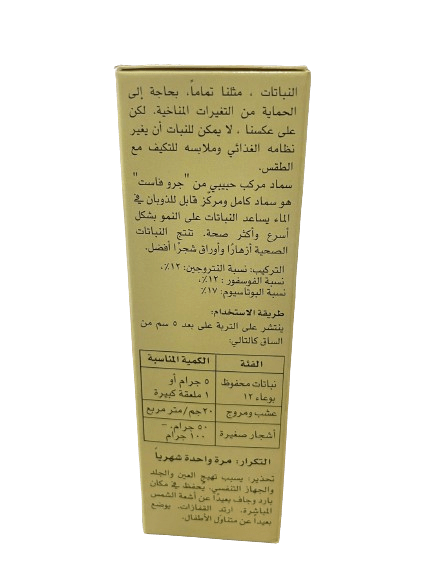 النباتات ، مثلنا تماماً، بحاجة إلى
الحماية من التغيرات المناخية. لكن
على عكسنا ، لا يمكن للنبات أن يغير
نظامه الغذائي وملابسه للتكيف مع
الطقس.
سماد مركب حبيبي من "جرو فاست"
هو سماد كامل ومركز قابل للذوبان في
الماء يساعد النباتات على النمو بشكل
أسرع وأكثر صحة. تنتج النباتات
الصحية أزهارًا وأوراق شجرًا أفضل.
التركيب: نسبة النتروجين: ١٢٪،
نسبة الفوسفور : ١٢٪،
نسبة البوتاسيوم: ١٧٪
طريقة الاستخدام:
ينتشر على التربة على بعد ٥ سم من
الساق كالتالي:
الفئة الكمية المناسبة
نباتات محفوظ ٥ جرام أو
بوعاء ١٢ ١ ملعقة كبيرة
عشب ومروج ٢٠جم/متر مربع
أشجار صغيرة ٥٠ جرام. –
١٠٠ جرام
التكرار: مرة واحدة شهرياً
تحذير: يسبب تهيج العين والجلد
والجهاز التنفسي. يُحفظ في مكان
بارد وجاف بعيداً عن أشعة الشمس
المباشرة. ارتد القفازات. يوضع
بعيداً عن متناول الأطفال.